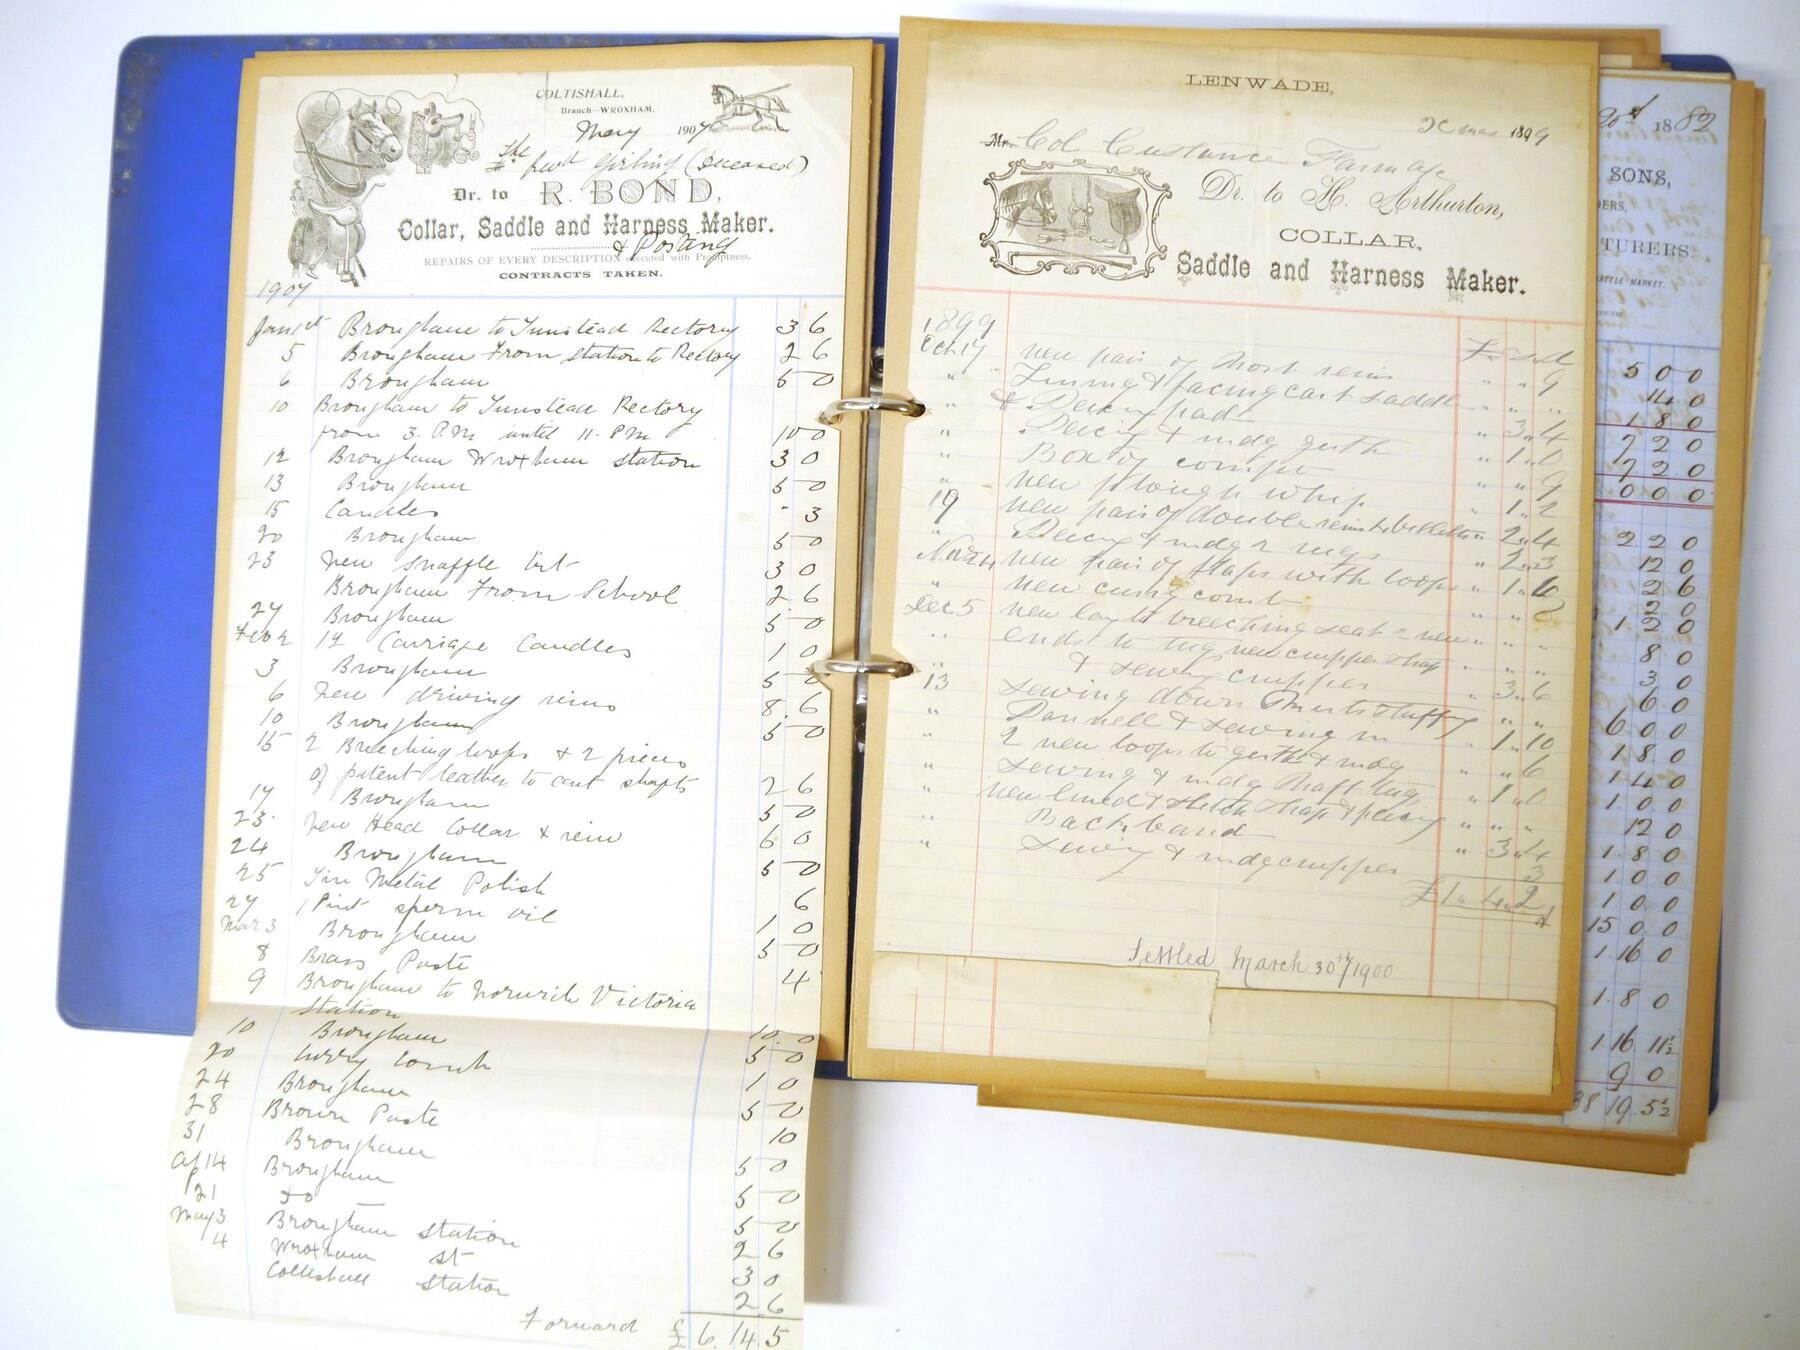 COLTISHALL,
Branch—WROXHAM.
May 1907
The
Girling (Deceased)
Dr. to R. BOND,
Collar, Saddle and Harness Maker.
& Posting
REPAIRS OF EVERY DESCRIPTION executed with Promptness.
CONTRACTS TAKEN.
1907
Brougham to Tunstead Rectory 3 6
5 Brougham From Station to Rectory 2 6
6 Brougham 5 0
10 Brougham to Tunstead Rectory
from 3. P.M. until 11. PM 10 0
12 Brougham Wroxham Station 3 0
13 Brougham 5 0
15 Candles - 3
20 Brougham 5 0
23 New Snaffle bit 3 0
Brougham From School 2 6
27 Brougham 5 0
Feb 2 12 Carriage Candles 1 0
3 Brougham 5 0
6 New driving reins 8 6
10 Brougham 5 0
15 2 Breeching loops & 2 pieces
of patent leather to cart shafts 2 6
17 Brougham 5 0
23 New Head Collar & rein 6 0
24 Brougham 5 0
25 Tin Metal Polish 6
27 1 Pint sperm oil 1 0
Mar 3 Brougham 5 0
8 Brass Paste 4
9 Brougham to Norwich Victoria
Station 10 0
10 Brougham 5 0
20 Curry Comb 1 0
24 Brougham 5 0
28 Brown Paste 10
31 Brougham 5 0
Ap 14 Brougham 5 0
21 Do 5 0
May 3 Brougham Station 2 6
4 Wroxham St 3 0
Coltishall Station 2 6
Forward £ 6. 14. 5
LENWADE,
Xmas 1899
Mr. Col Custance
Dr. to H. Arthurton,
COLLAR,
Saddle and Harness Maker.
1899 £ s d
Oct 17 new pair of reins " " 9
" Lining & facing cart saddle " " "
" & pad " 3 " 4
" & mdg girth " 1 " 0
" Box of compo " " 9
" new plough whip " 1 " 2
19 new pair of double reins 2 " 4
" & mdg 2 " 2 " 3
new pair of flaps with loops " 1 "
" new curry comb " "
Dec 5 new breeching seat 2 new " " "
" ends to tug new crupper strap " " "
" & sewing crupper " 3 " 6
13 sewing down " " "
" Pannell & sewing in " 1 " 10
" 2 new loops to girth & mdg " " 6
" sewing & mdg shaft tug " 1 " 0
" new lined & stitch strap & " " "
" Backband " 3 " 4
" sewing & mdg crupper 3
£1 " 4 " 2
Settled March 30th/1900
1882
SONS,
TURERS.
CATTLE MARKET.
5 0 0
14 0
1 8 0
7 2 0
7 2 0
0 0 0
2 2 0
12 0
2 6
2 0
1 2 0
8 0
3 0
6 0
6 0 0
1. 8 0
1. 4 0
1. 0. 0
12 0
1. 8 0
1 0 0
1 0 0
15 0. 0
1. 16 0
1. 8 0
1. 16. 11½
9 0
38 19. 5½